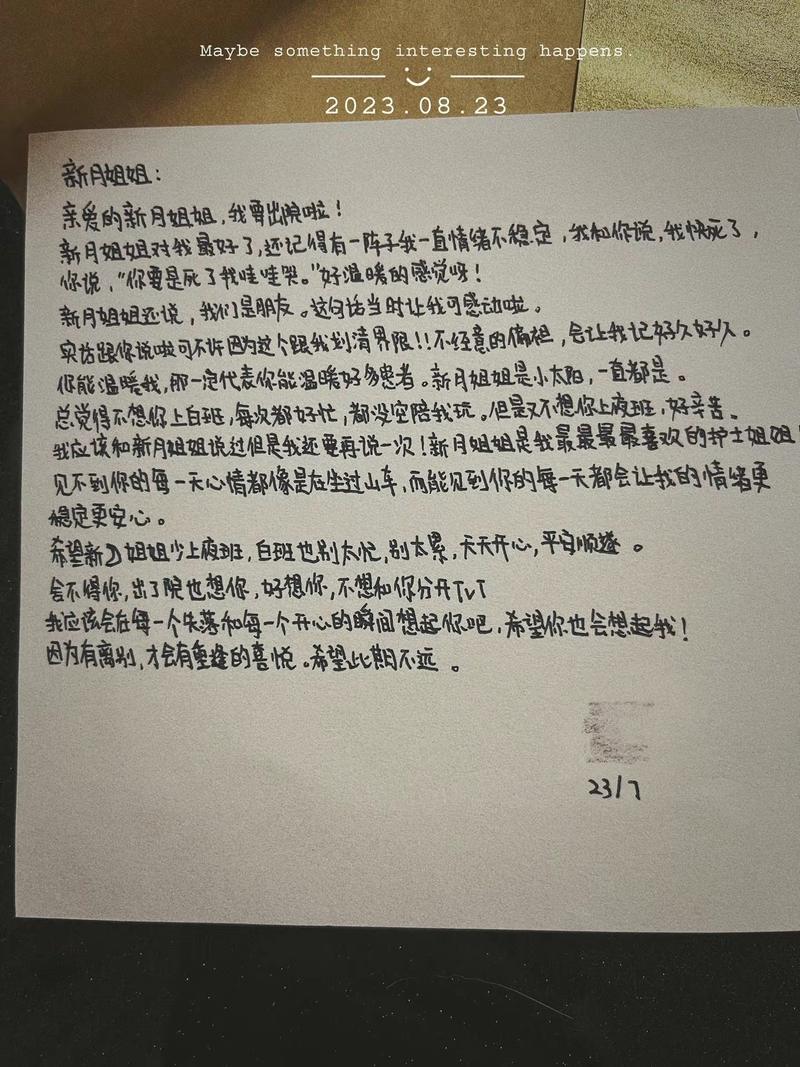 Maybe something interesting happens.
2023.08.23
新月姐姐:
亲爱的新月姐姐,我要出院啦!
新月姐姐对我最好了,还记得有一阵子我一直情绪不稳定,我和你说,我快死了,
你说,"你要是死了我哇哇哭。"好温暖的感觉呀!
新月姐姐还说,我们是朋友。这句话当时让我可感动啦。
实话跟你说啦可不许因为这个跟我划清界限!!不经意的偏袒,会让我记好久好久。
你能温暖我,那一定代表你能温暖好多患者。新月姐姐是小太阳,一直都是。
总觉得不想你上白班,每次都好忙,都没空陪我玩。但是又不想你上夜班,好辛苦。
我应该和新月姐姐说过但是我还要再说一次!新月姐姐是我最最最最喜欢的护士姐姐!
见不到你的每一天心情都像是在坐过山车,而能见到你的每一天都会让我的情绪更
稳定更安心。
希望新月姐姐少上夜班,白班也别太忙,别太累,天天开心,平安顺遂。
舍不得你,出了院也想你,好想你,不想和你分开TvT
我应该会在每一个失落和每一个开心的瞬间想起你吧,希望你也会想起我!
因为有离别,才会有重逢的喜悦。希望此期不远。
23/7